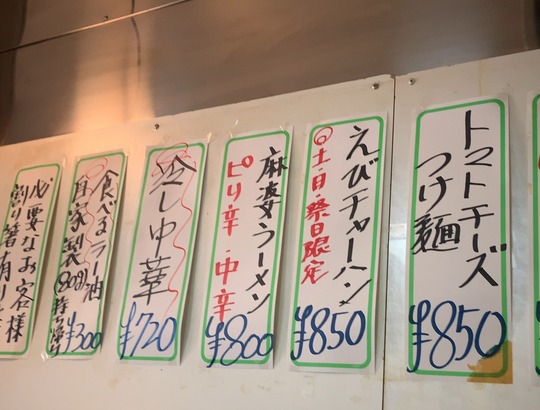 トマトチーズ
つけ麺
¥850
えびチャーハン
◎土・日・祭日限定
¥850
麻婆ラーメン
ピリ辛・中辛
¥800
冷し中華
¥720
食べるラー油
自家製(80g)持帰り
¥300
必要なお客様
割り箸有り